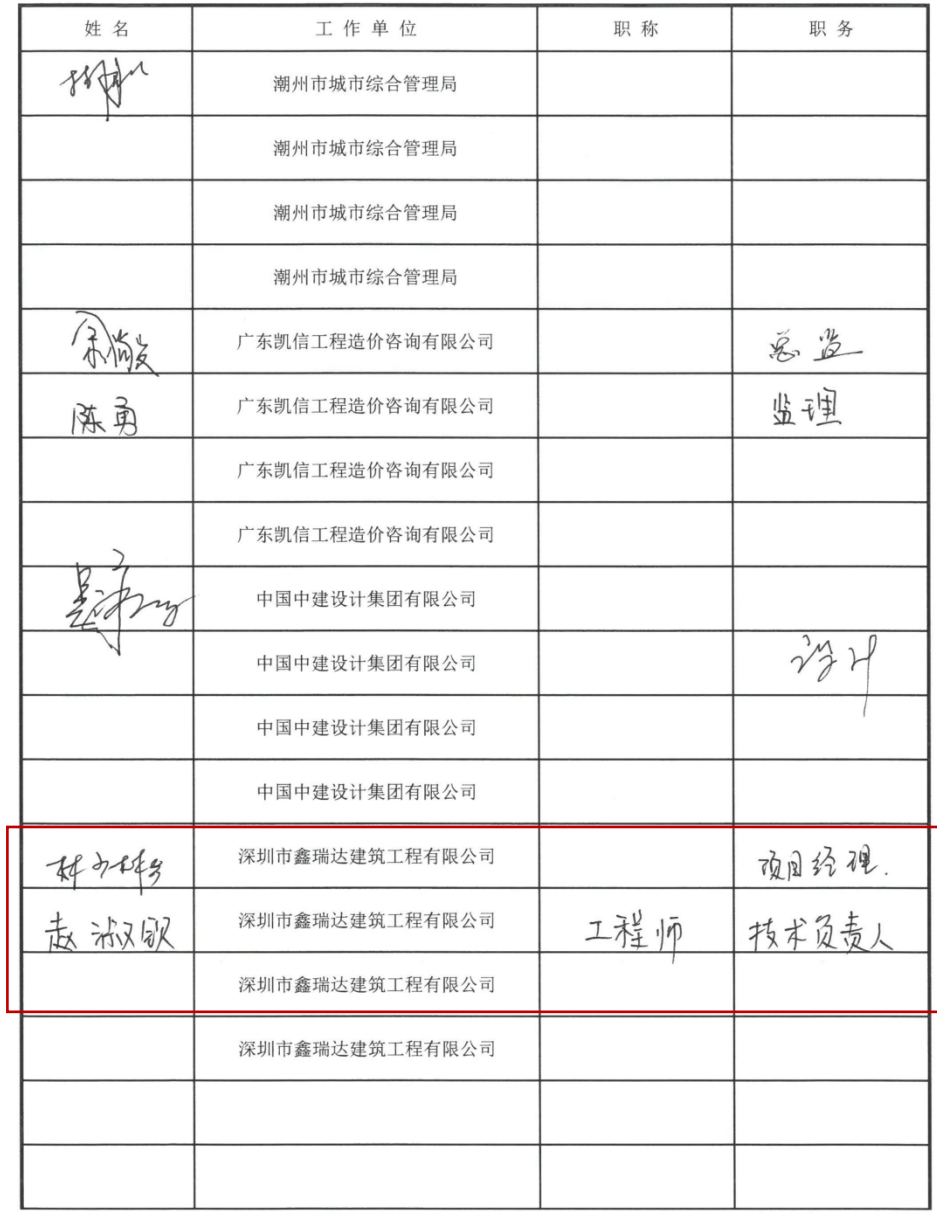 姓 名 工 作 单 位 职 称 职 务
潮州市城市综合管理局
潮州市城市综合管理局
潮州市城市综合管理局
潮州市城市综合管理局
广东凯信工程造价咨询有限公司 总监
陈勇 广东凯信工程造价咨询有限公司 监理
广东凯信工程造价咨询有限公司
广东凯信工程造价咨询有限公司
中国中建设计集团有限公司
中国中建设计集团有限公司 设计
中国中建设计集团有限公司
中国中建设计集团有限公司
深圳市鑫瑞达建筑工程有限公司 项目经理.
赵淑钗 深圳市鑫瑞达建筑工程有限公司 工程师 技术负责人
深圳市鑫瑞达建筑工程有限公司
深圳市鑫瑞达建筑工程有限公司